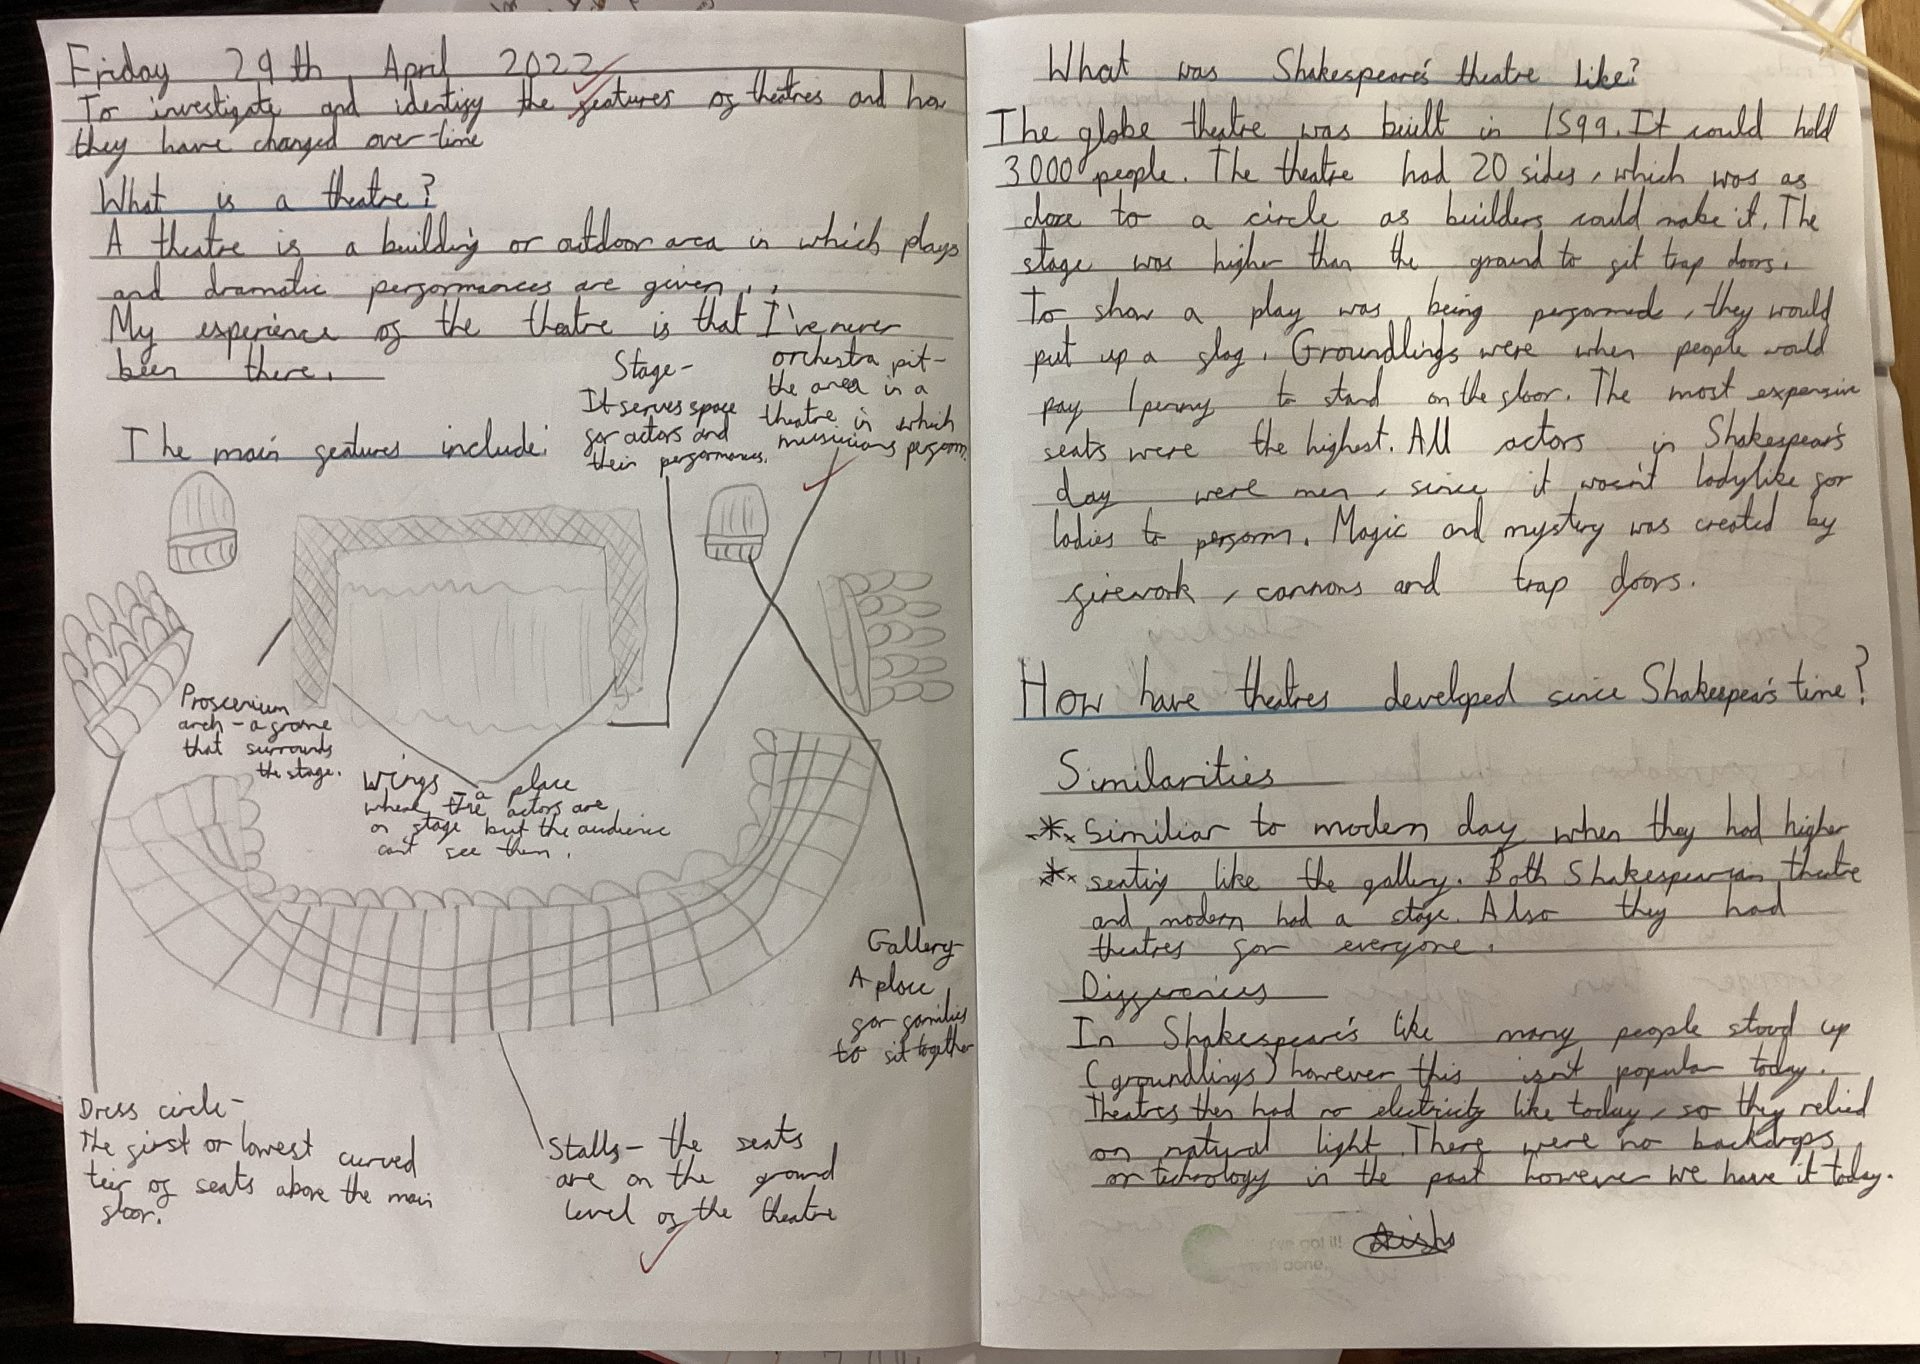 Friday 29th April 2022
To investigate and identify the features of theatres and how
they have changed over time
What is a theatre?
A theatre is a building or outdoor area in which plays
and dramatic performances are given..
My experience of the theatre is that I've never
been there.
The main features include:
Stage-
It serves space
for actors and
their performances.
orchestra pit-
the area in a
theatre in which
musicians perform.
Proscenium
arch - a frame
that surrounds
the stage.
Wings - a place
where the actors are
on stage but the audience
cant see them.
Gallery-
A place
for families
to sit together
Dress circle-
the first or lowest curved
teir of seats above the main
floor.
Stalls - the seats
are on the ground
level of the theatre
What was Shakespeare's theatre like?
The globe theatre was built in 1599. It could hold
3000 people. The theatre had 20 sides, which was as
close to a circle as builders could make it. The
stage was higher than the ground to fit trap doors.
To show a play was being performed, they would
put up a flag. Groundlings were when people would
pay 1 penny to stand on the floor. The most expensive
seats were the highest. All actors in Shakespear's
day were men, since it wasn't ladylike for
ladies to perform. Magic and mystery was created by
firework, cannons and trap doors.
How have theatres developed since Shakespear's time?
Similarities
* Similiar to modern day when they had higher
* seating like the gallery. Both Shakespearian theatre
and modern had a stage. Also they had
theatres for everyone.
Differences
In Shakespeare's like many people stood up
(groundlings) however this isn't popular today.
Theatres then had no electricity like today, so they relied
on natural light. There were no backdrops
or technology in the past however we have it today.
I've got it!
Well done.